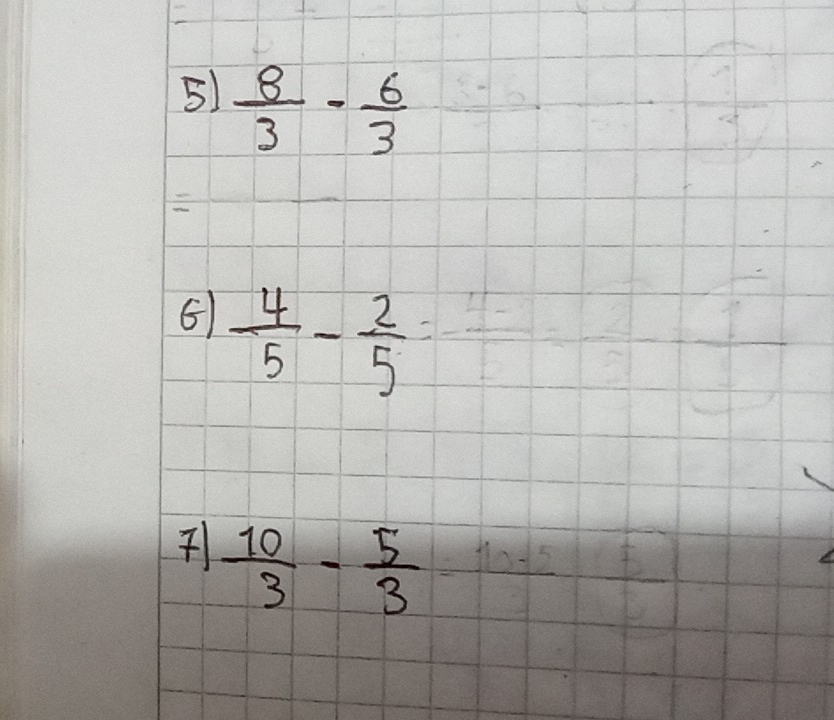 5) 8/3 - 6/3
=
6) 4/5 - 2/5 =
7) 10/3 - 5/3